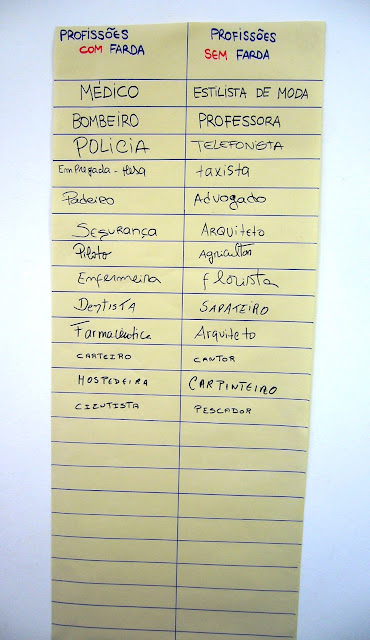 PROFISSÕES PROFISSÕES
COM FARDA SEM FARDA
MÉDICO ESTILISTA DE MODA
BOMBEIRO PROFESSORA
POLICIA TELEFONISTA
Empregada-Mesa taxista
Padeiro Advogado
Segurança ARQUITETO
Piloto Agricultor
Enfermeira florista
Dentista SAPATEIRO
Farmaceutica Arquiteto
CARTEIRO CANTOR
HOSPEDEIRA CARPINTEIRO
CIENTISTA PESCADOR